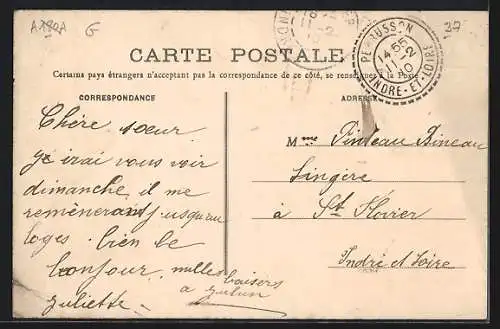 A180A G 37
CARTE POSTALE
Certains pays étrangers n'acceptent pas la correspondance de ce côté, se renseigner à la Poste
PERRUSSON
14 55
11-2
10
INDRE-ET-LOIRE
CORRESPONDANCE
ADRESSE
Chère sœur
je irai vous voir
dimanche il me
remèneront jusquau
loges. bien le
bonjour. milles baisers
a
juliette
Mme Pinteau Bineau
Lingère
à St Flovier
Indre et Loire